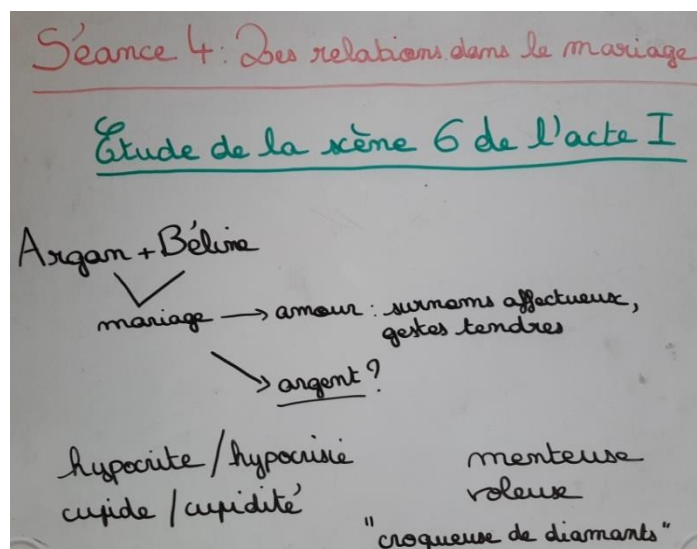 Séance 4 : Des relations dans le mariage
Étude de la scène 6 de l'acte I
Argan + Béline
mariage → amour : surnoms affectueux,
gestes tendres
→ argent ?
hypocrite / hypocrisie
menteuse
cupide / cupidité
voleuse
"croqueuse de diamants"